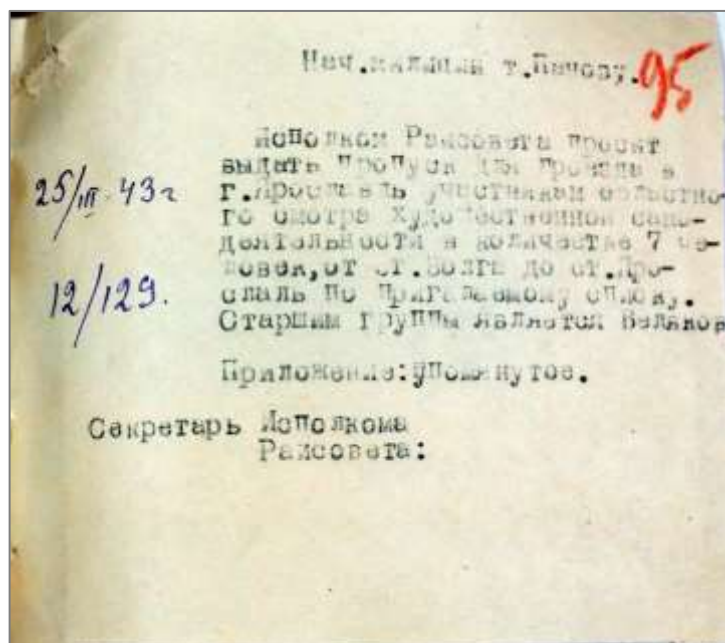 Нач.милиции т.Пачову.
95
Исполком Райсовета просит
выдать пропуск для проезда в
г.Ярославль участникам областно-
го смотра художественной само-
деятельности в количестве 7 че-
ловек,от ст.Волга до ст.Яро-
слаль по прилагаемому списку.
Старшим группы является Беляков
25/III 43 г
12/129.
Приложение:упомянутое.
Секретарь Исполкома
Райсовета: